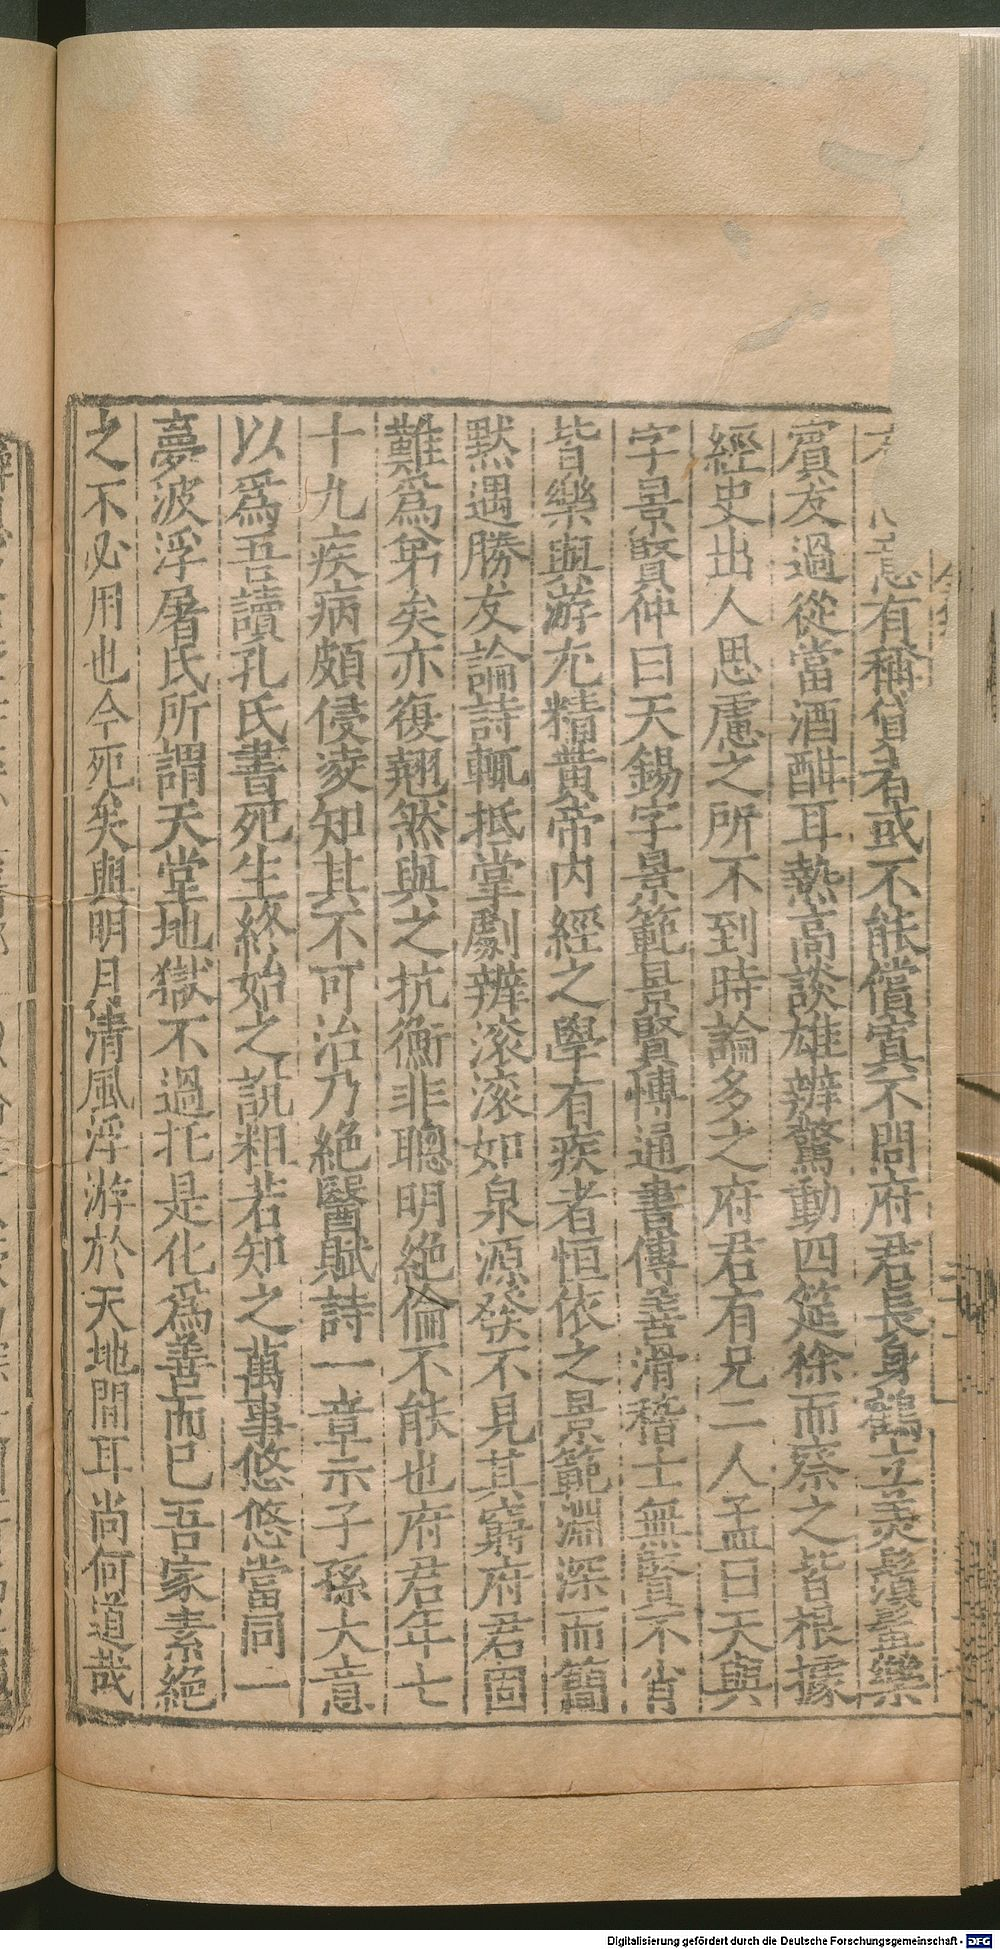 意有稱貸者或不能償寘不問府君長身鶴立美鬚髯樂
賓友過從當酒酣耳熱高談雄辨驚動四筵徐而察之皆根據
經史出人思慮之所不到時論多之府君有兄二人孟曰天與
字景賢仲曰天錫字景範景賢愽通書傳善滑稽士無賢不肖
皆樂與游尤精黄帝内經之學有疾者恒依之景範淵深而簡
默遇勝友論詩輒抵掌劇辨滚滚如泉源發不見其窮府君固
難為弟矣亦復翹然與之抗衡非聰明絶倫不能也府君年七
十九疾病頗侵凌知其不可治乃絶醫賦詩一章示子孫大意
以爲吾讀孔氏書死生終始之説粗若知之萬事悠悠當同一
夢彼浮屠氏所謂天堂地獄不過托是化爲善而已吾家素絶
之不必用也今死矣與明月清風浮游於天地間耳尚何道哉
Digitalisierung gefördert durch die Deutsche Forschungsgemeinschaft - DFG